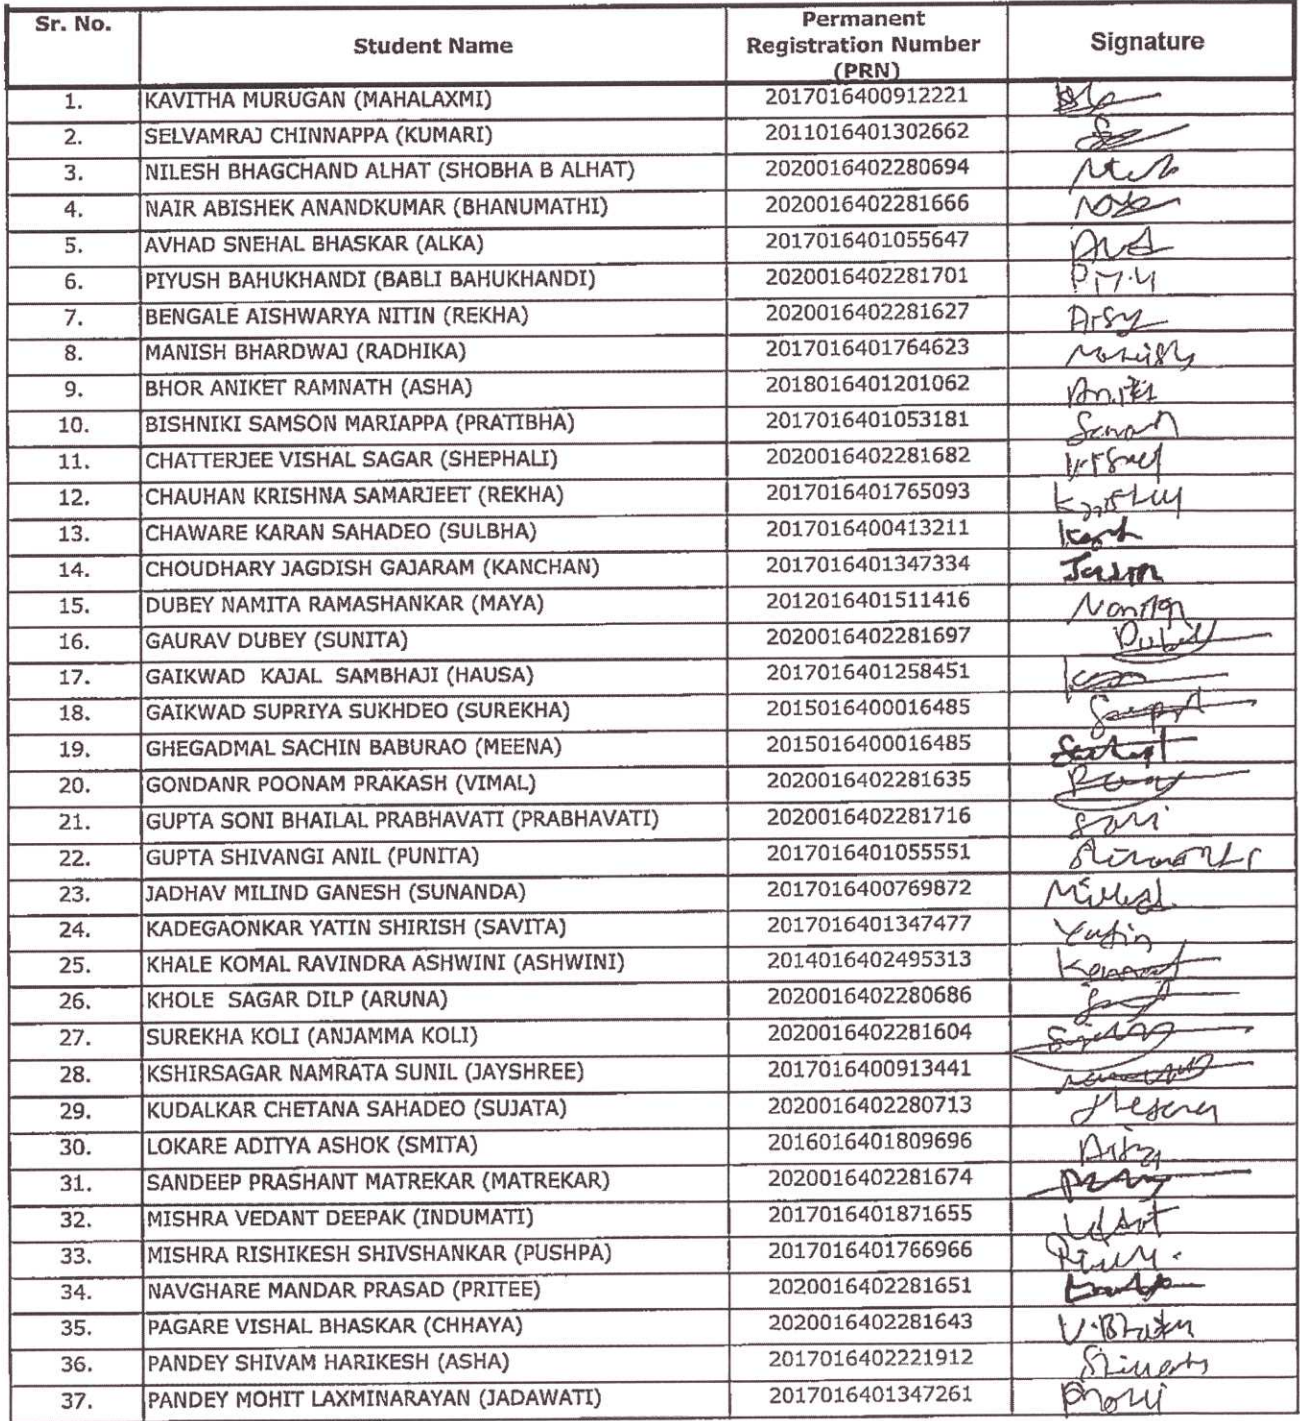 Sr. No. Student Name Permanent Registration Number (PRN) Signature
1. KAVITHA MURUGAN (MAHALAXMI) 2017016400912221
2. SELVAMRAJ CHINNAPPA (KUMARI) 2011016401302662
3. NILESH BHAGCHAND ALHAT (SHOBHA B ALHAT) 2020016402280694
4. NAIR ABISHEK ANANDKUMAR (BHANUMATHI) 2020016402281666
5. AVHAD SNEHAL BHASKAR (ALKA) 2017016401055647
6. PIYUSH BAHUKHANDI (BABLI BAHUKHANDI) 2020016402281701
7. BENGALE AISHWARYA NITIN (REKHA) 2020016402281627
8. MANISH BHARDWAJ (RADHIKA) 2017016401764623
9. BHOR ANIKET RAMNATH (ASHA) 2018016401201062
10. BISHNIKI SAMSON MARIAPPA (PRATIBHA) 2017016401053181
11. CHATTERJEE VISHAL SAGAR (SHEPHALI) 2020016402281682
12. CHAUHAN KRISHNA SAMARJEET (REKHA) 2017016401765093
13. CHAWARE KARAN SAHADEO (SULBHA) 2017016400413211
14. CHOUDHARY JAGDISH GAJARAM (KANCHAN) 2017016401347334
15. DUBEY NAMITA RAMASHANKAR (MAYA) 2012016401511416
16. GAURAV DUBEY (SUNITA) 2020016402281697
17. GAIKWAD KAJAL SAMBHAJI (HAUSA) 2017016401258451
18. GAIKWAD SUPRIYA SUKHDEO (SUREKHA) 2015016400016485
19. GHEGADMAL SACHIN BABURAO (MEENA) 2015016400016485
20. GONDANR POONAM PRAKASH (VIMAL) 2020016402281635
21. GUPTA SONI BHAILAL PRABHAVATI (PRABHAVATI) 2020016402281716
22. GUPTA SHIVANGI ANIL (PUNITA) 2017016401055551
23. JADHAV MILIND GANESH (SUNANDA) 2017016400769872
24. KADEGAONKAR YATIN SHIRISH (SAVITA) 2017016401347477 Yatin
25. KHALE KOMAL RAVINDRA ASHWINI (ASHWINI) 2014016402495313
26. KHOLE SAGAR DILP (ARUNA) 2020016402280686
27. SUREKHA KOLI (ANJAMMA KOLI) 2020016402281604
28. KSHIRSAGAR NAMRATA SUNIL (JAYSHREE) 2017016400913441
29. KUDALKAR CHETANA SAHADEO (SUJATA) 2020016402280713
30. LOKARE ADITYA ASHOK (SMITA) 2016016401809696
31. SANDEEP PRASHANT MATREKAR (MATREKAR) 2020016402281674
32. MISHRA VEDANT DEEPAK (INDUMATI) 2017016401871655
33. MISHRA RISHIKESH SHIVSHANKAR (PUSHPA) 2017016401766966
34. NAVGHARE MANDAR PRASAD (PRITEE) 2020016402281651
35. PAGARE VISHAL BHASKAR (CHHAYA) 2020016402281643
36. PANDEY SHIVAM HARIKESH (ASHA) 2017016402221912
37. PANDEY MOHIT LAXMINARAYAN (JADAWATI) 2017016401347261